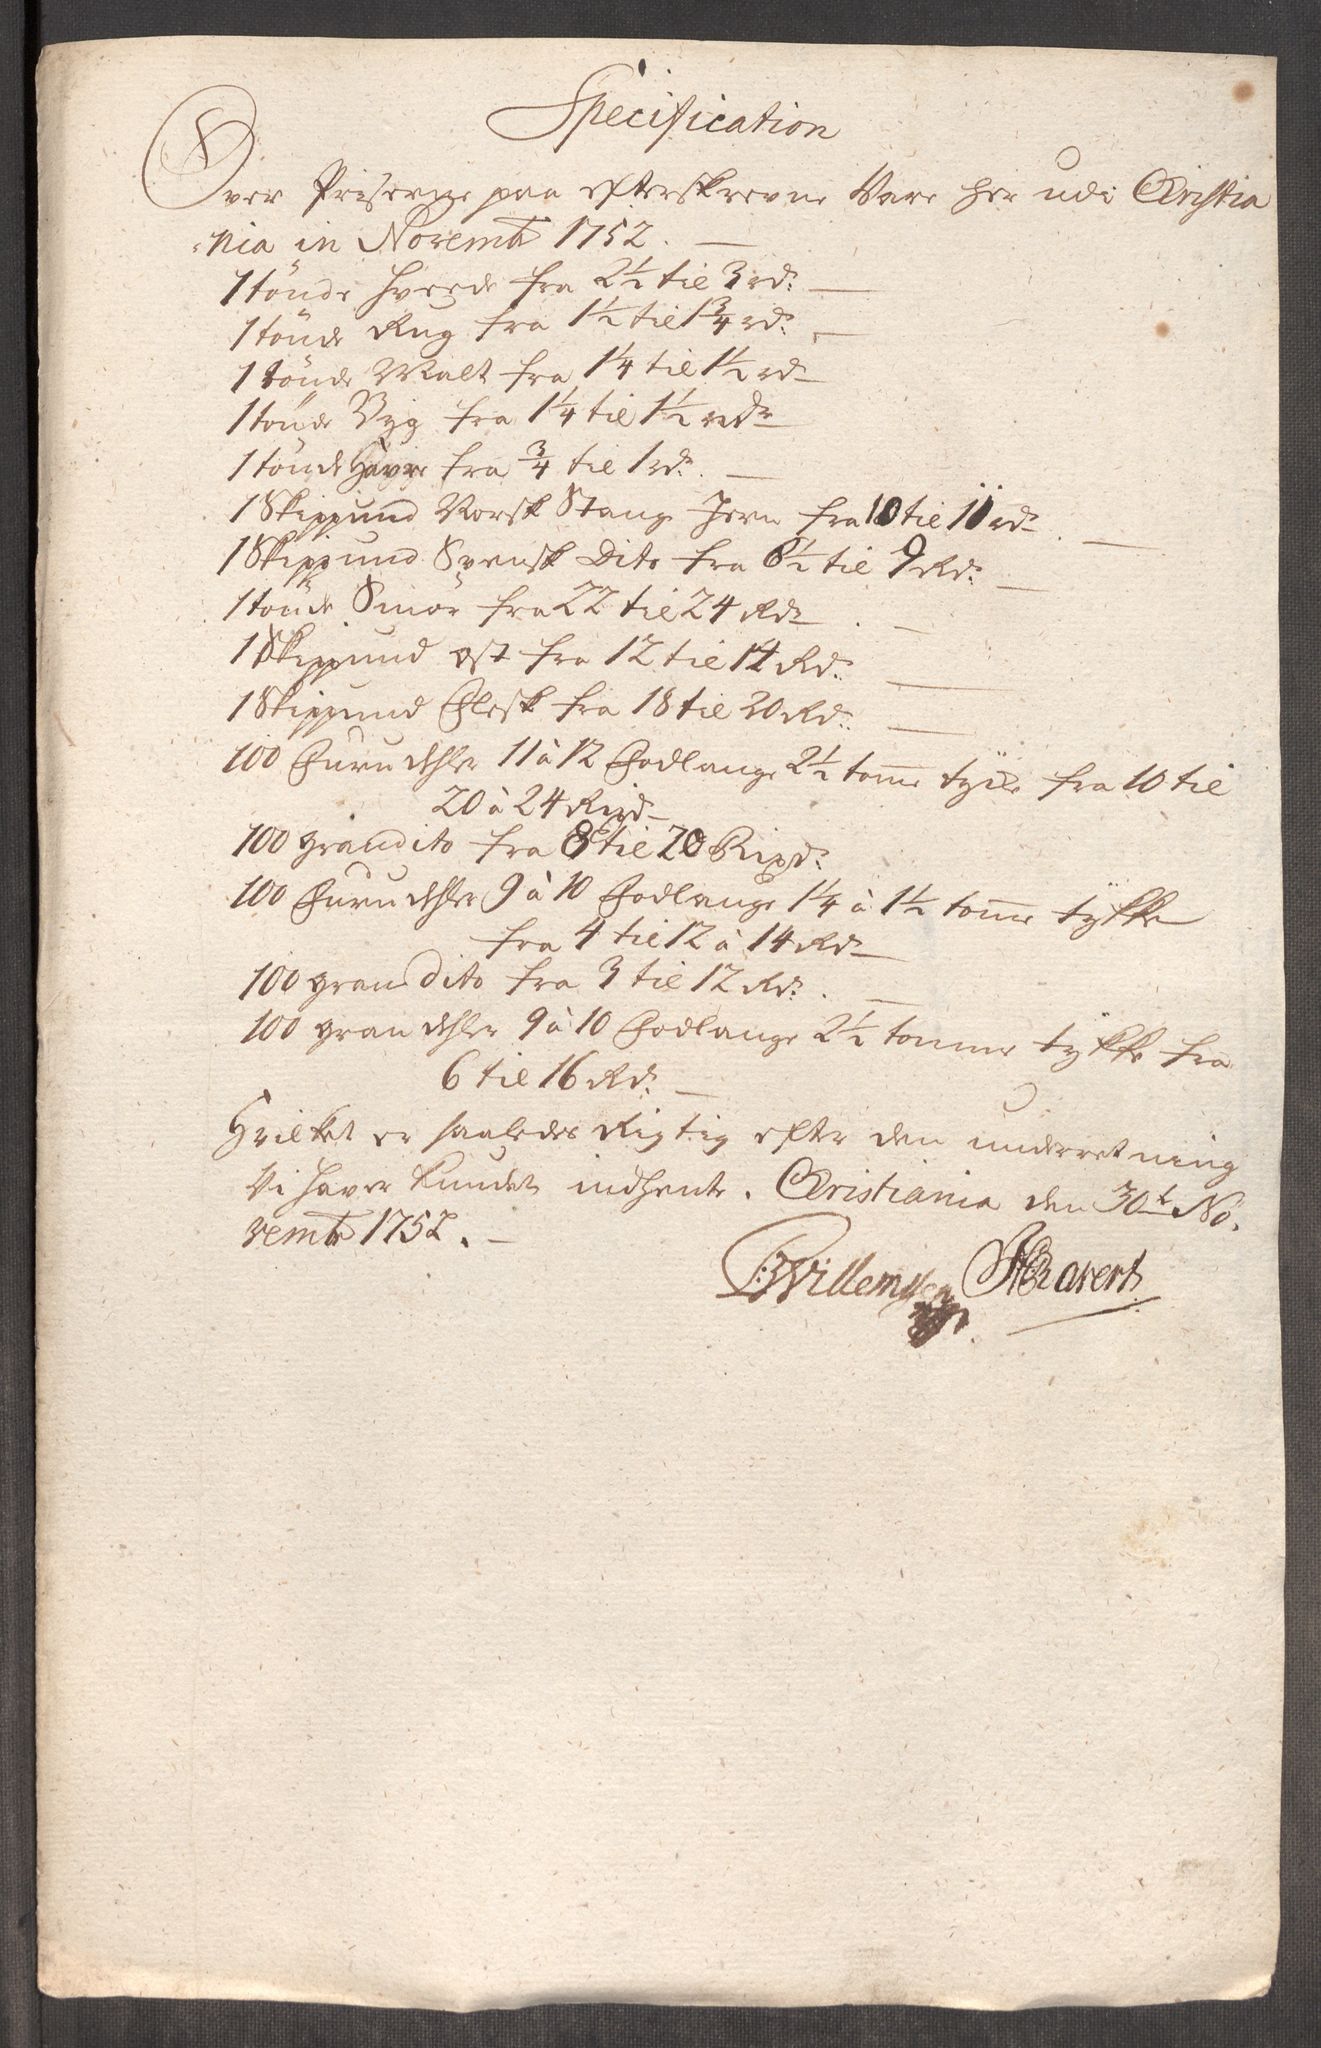 Specification
Over Priserne paa efterskrevne Vare her udi Christia
nia in Novembr 1752.
1 tönde Hvede fra 2½ til 3 rdr.
1 tönde Rug fra 1½ til 1¾ rdr.
1 tönde Malt fra 1¼ til 1½ rdr
1 tönde Byg fra 1¼ til 1½ rdr
1 tönde Havre fra ¾ til 1 rdr.
1 Skippund Norsk Stang Jern fra 10 til 11 rdr
1 Skippund Svensk Dito fra 8½ til 9 Rdr.
1 tönde Smör fra 22 til 24 Rdr
1 Skippund ost fra 12 til 14 Rdr.
1 Skippund Flesk fra 18 til 20 Rdr.
100 Furu dehler 11 à 12 Fodlange 2½ tomme tycke fra 10 til
20 à 24 Rixdr
100 gran dito fra 8 til 20 Rixdr.
100 Furu dehler 9 à 10 Fodlange 1¼ à 1½ tomme tykke
fra 4 til 12 à 14 Rdr
100 gran dito fra 3 til 12 Rdr.
100 gran dehler 9 à 10 Fodlange 2½ tomme tykke fra
6 til 16 Rdr.
Hvilket er saaledes Rigtig efter den underretning
Vi haver kundet indhente. Christiania den 30t No
vembr 1752.
Willemssen Ravert